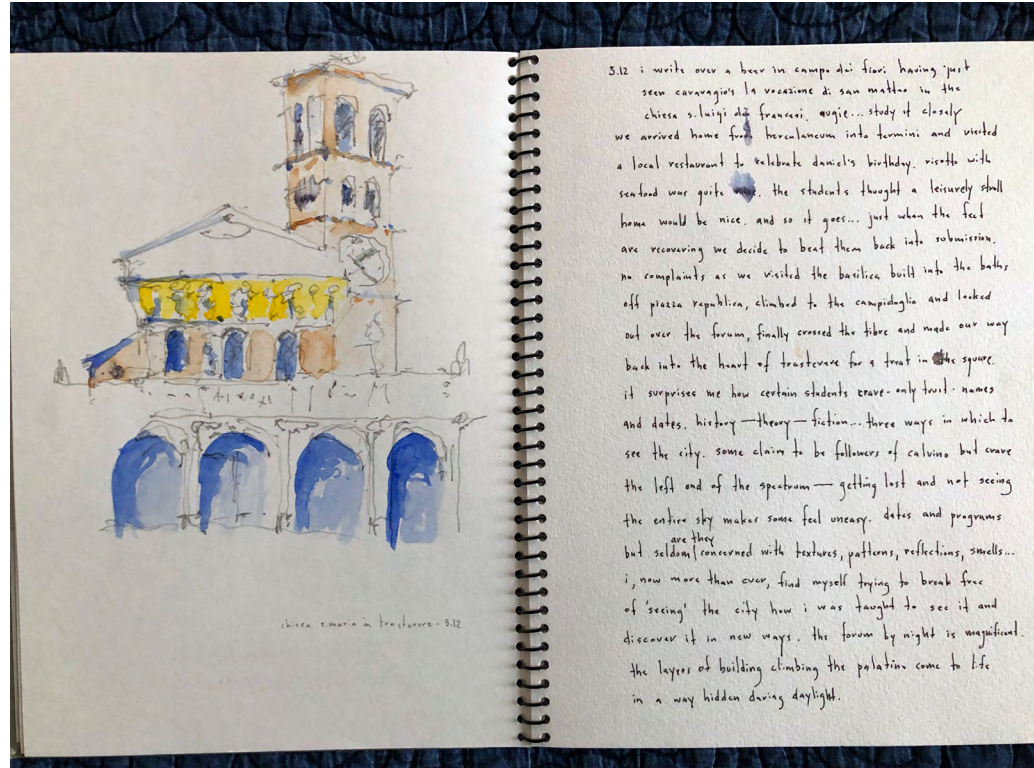 chiesa s.maria in trastevere · 5.12
5.12 i write over a beer in campo dei fiori having just
seen caravagio's la vocazione di san matteo in the
chiesa s. luigi dei francesi. augie... study it closely
we arrived home from herculaneum into termini and visited
a local restaurant to celebrate daniel's birthday. risotto with
seafood was quite the students thought a leisurely stroll
home would be nice. and so it goes... just when the feet
are recovering we decide to beat them back into submission.
no complaints as we visited the basilica built into the baths
off piazza republica, climbed to the campidoglio and looked
out over the forum, finally crossed the tibre and made our way
back into the heart of trastevere for a treat in the square.
it surprises me how certain students crave - only trust - names
and dates. history — theory — fiction... three ways in which to
see the city. some claim to be followers of calvino but crave
the left end of the spectrum — getting lost and not seeing
the entire sky makes some feel uneasy. dates and programs
are they
but seldom concerned with textures, patterns, reflections, smells...
i, now more than ever, find myself trying to break free
of 'seeing' the city how i was taught to see it and
discover it in new ways. the forum by night is magnificent.
the layers of building climbing the palatine come to life
in a way hidden during daylight.